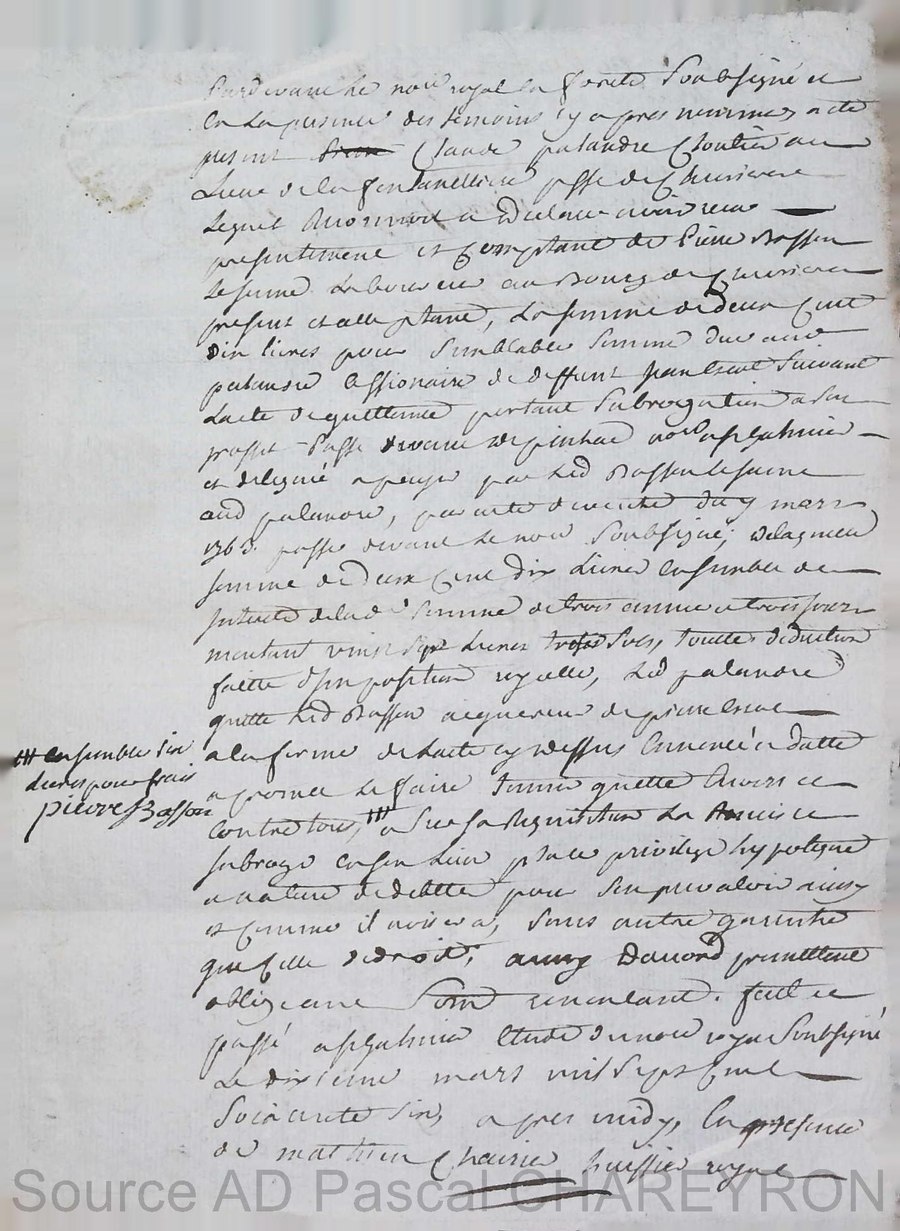 Pardevant le nore royal en forets soubsigné et
en la presence des temoins cy apres nommes a eté
present Claude palandre Cloutier au
Lieu de la fontanelliere psse de
Lequel a declaré avoir recu
presentement et Comptant de Pierre Basson
Lejeune Laboureur au Bourg de
present et acceptant, La somme de deux Cent
dix livres pour semblable somme due aud
palandre Cessionaire de deffunt suivant
Lacte de quittance portant subrogation a son
profit passé devant nore a
et delegué a payer par led Basson Lejeune
aud palandre, par acte de vente du 7 mars
1763 passé devant le nore soubsigné; de laquelle
somme de deux Cent dix Livres ensemble de
interets de lade somme de trois année et trois jours
montant vint sept Livres trois sols, toutte deduction
faitte d'imposition royalle, Led palandre
quitte Led Basson acquereur de pierre
a la forme de Lacte cy dessus enoncé et datté
a promet Le faire tenir quitte envers et
Contre tous, ╫ a sur sa Requisition La mis et
subrogé en son Lieu place privilege hypoteque
et nature de debtte pour s'en prevaloir ainsy
et comme il avisera, sans autre garentie
que Celle de droit; ainsy Daccord promettant
obligeant Soum renoncant. fait et
passé a etude du nore royal soubsigné
Le dixieme mars mil sept Cent
soixante six, apres midy, En presence
de mathieu huissier royal
╫ ensemble six
Livres pour frais
pierre Basson
Source AD Pascal CHAREYRON